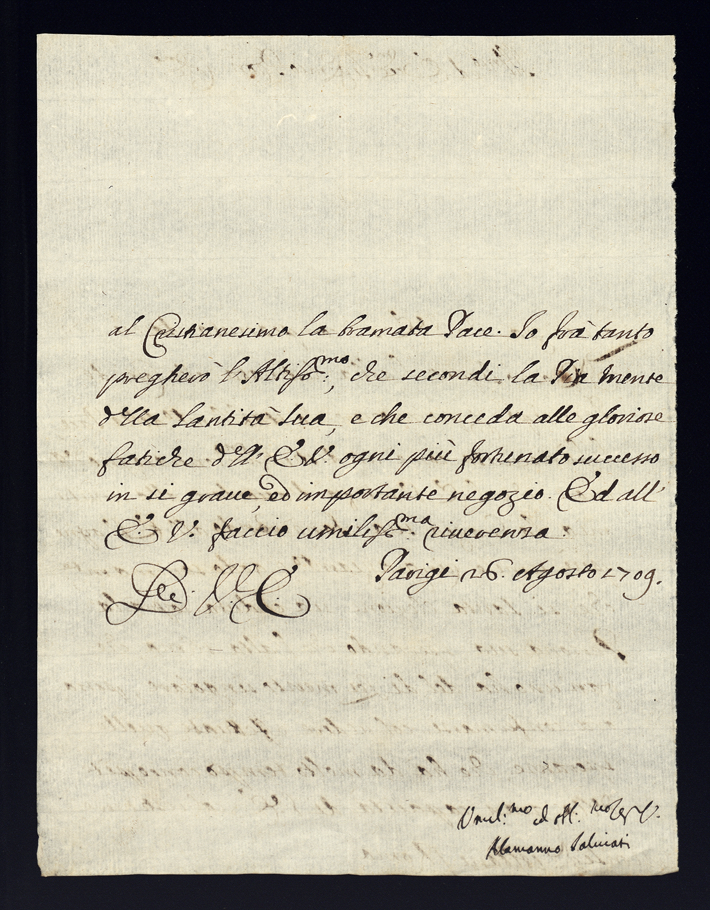 al Cristianesimo la bramata Pace. Io frà tanto
pregherò l'Altiss.mo; che secondi la Pia mente
della Santità Sua, e che conceda alle gloriose
fatiche dell' E. V. ogni più fortunato successo
in si graue, ed importante negozio. Ed all'
E. V. faccio umiliss.ma riuerenza.
Parigi 26. Agosto 1709.
Umil.mo ed obl.mo
Alamanno Salviati